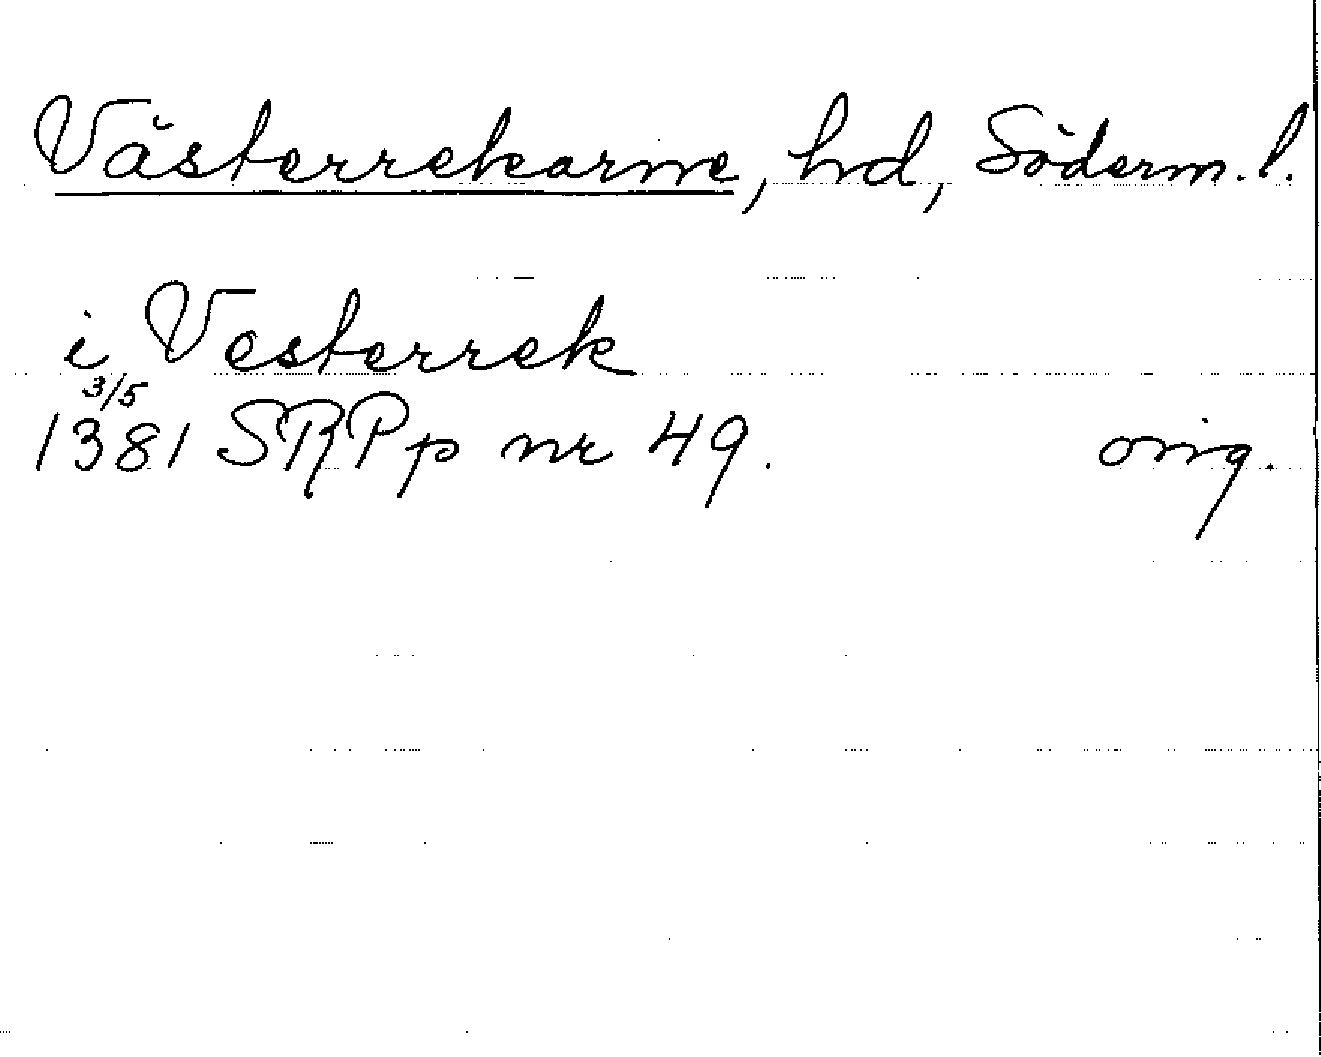 Västerrekarne, hd, Söderm. l.
i Vesterrek
3/5
1381 SRPp nr 49. orig.